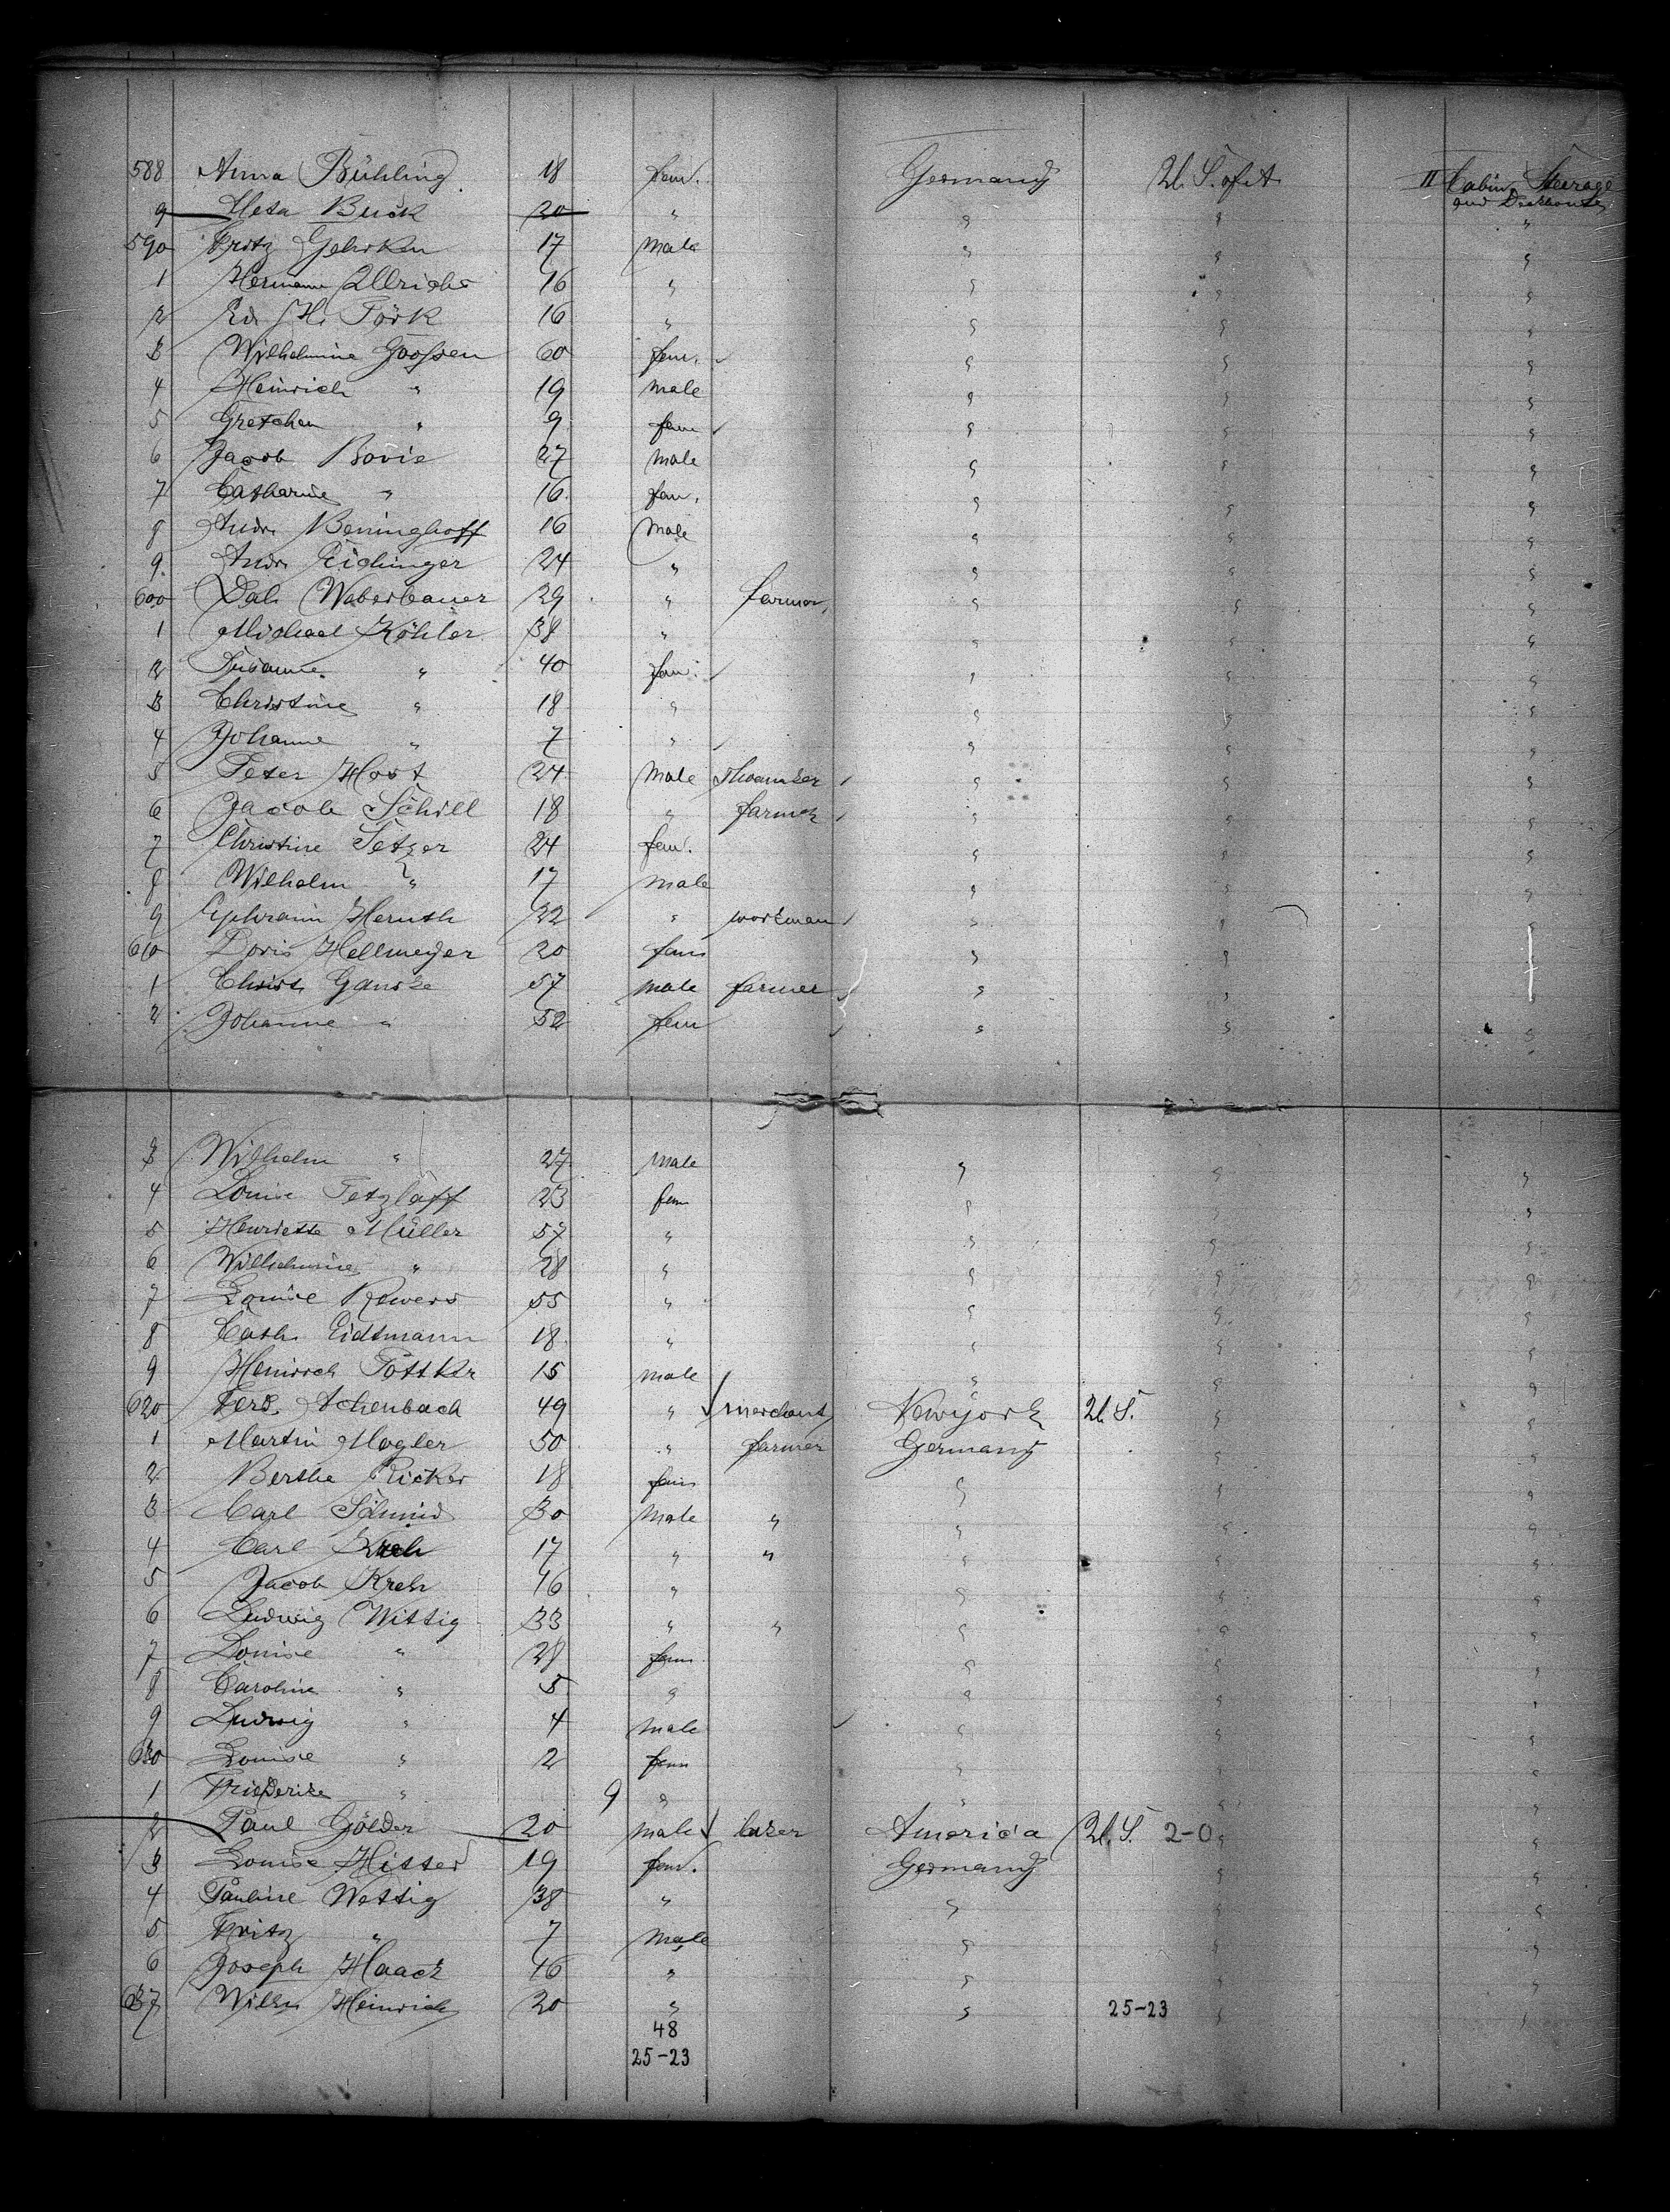 588 Anna Bühling 18 fem. Germany U. S. of A. II Cabin, Steerage
and Deckhouse
9 Meta Buck 20 " " " "
590 Fritz Gehrken 17 male " " "
1 Hermann Ullrichs 16 " " " "
2 Ed. H. Törk 16 " " " "
3 Wilhelmine Goossen 60 fem. " " "
4 Heinrich " 19 male " " "
5 Gretchen " 9 fem " " "
6 Jacob Bovie 27 male " " "
7 Catharine " 16 fem. " " "
8 Andr. Beninghoff 16 male " " "
9 Andr. Eichinger 24 " " " "
600 Dah. Weberbauer 29 " farmer " " "
1 Michael Köhler 38 " " " "
2 Susanne " 40 fem. " " "
3 Christine " 18 " " " "
4 Johanne " 7 " " " "
5 Peter Host 24 male " " "
6 Jacob Schill 18 " farmer " " "
7 Christine Setzer 24 fem. " " "
8 Wilhelm " 17 male " " "
9 Ephraim Heruth 22 " workman " " "
610 Doris Hellmeyer 20 fem " " "
1 Christ. Ganske 57 male farmer " " "
2 Johanne " 52 fem " " "
3 Wilhelm " 27 male " " "
4 Louise Tetzlaff 23 fem " " "
5 Henriette Müller 57 " " " "
6 Wilhelmine " 28 " " " "
7 Louise Rewers 55 " " " "
8 Cath. Eidtmann 18 " " " "
9 Heinrich Pöttker 15 male " " "
620 Ferd. Achenbach 49 " merchant Newyork U. S. " "
1 Martin Magler 50 " farmer Germany " "
2 Bertha Ricker 18 fem " " "
3 Carl Schmid 30 male " " " "
4 Carl Kreh 17 " " " " "
5 Jacob Kreh 16 " " " "
6 Ludwig Wittig 33 " " " " "
7 Louise " 28 fem " " "
8 Caroline " 5 " " " "
9 Ludwig " 4 male " " "
630 Louise " 2 fem " " "
1 Friederike " 9 " " " "
2 Paul Gölder 20 male America U. S. 2-0 " "
3 Louise Hitter 19 fem. Germany " "
4 Pauline Wettig 38 " " " "
5 Fritz " 7 male " " "
6 Joseph Haack 46 " " " "
637 Wilh. Heinrich 20 " " 25-23 " "
48
25-23